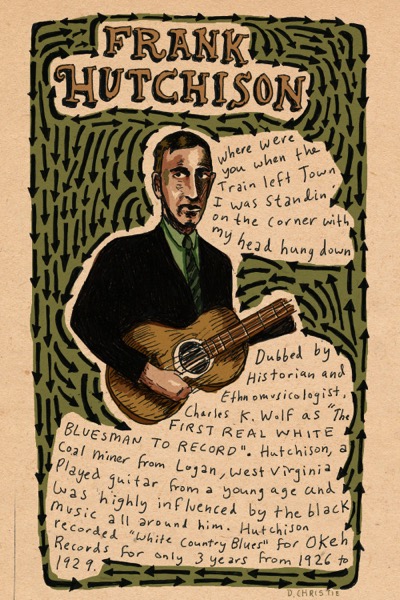 FRANK
HUTCHISON
where were
you when the
Train left Town
I was Standin'
on the corner with
my head hung down
Dubbed by
Historian and
Ethnomusicologist,
Charles K. Wolf as "The
FIRST REAL WHITE
BLUESMAN TO RECORD". Hutchison, a
Coal miner from Logan, West Virginia
Played guitar from a young age and
was highly influenced by the black
music all around him. Hutchison
recorded "White Country Blues" for OKeh
Records for only 3 years from 1926 to
1929.
D. CHRISTIE